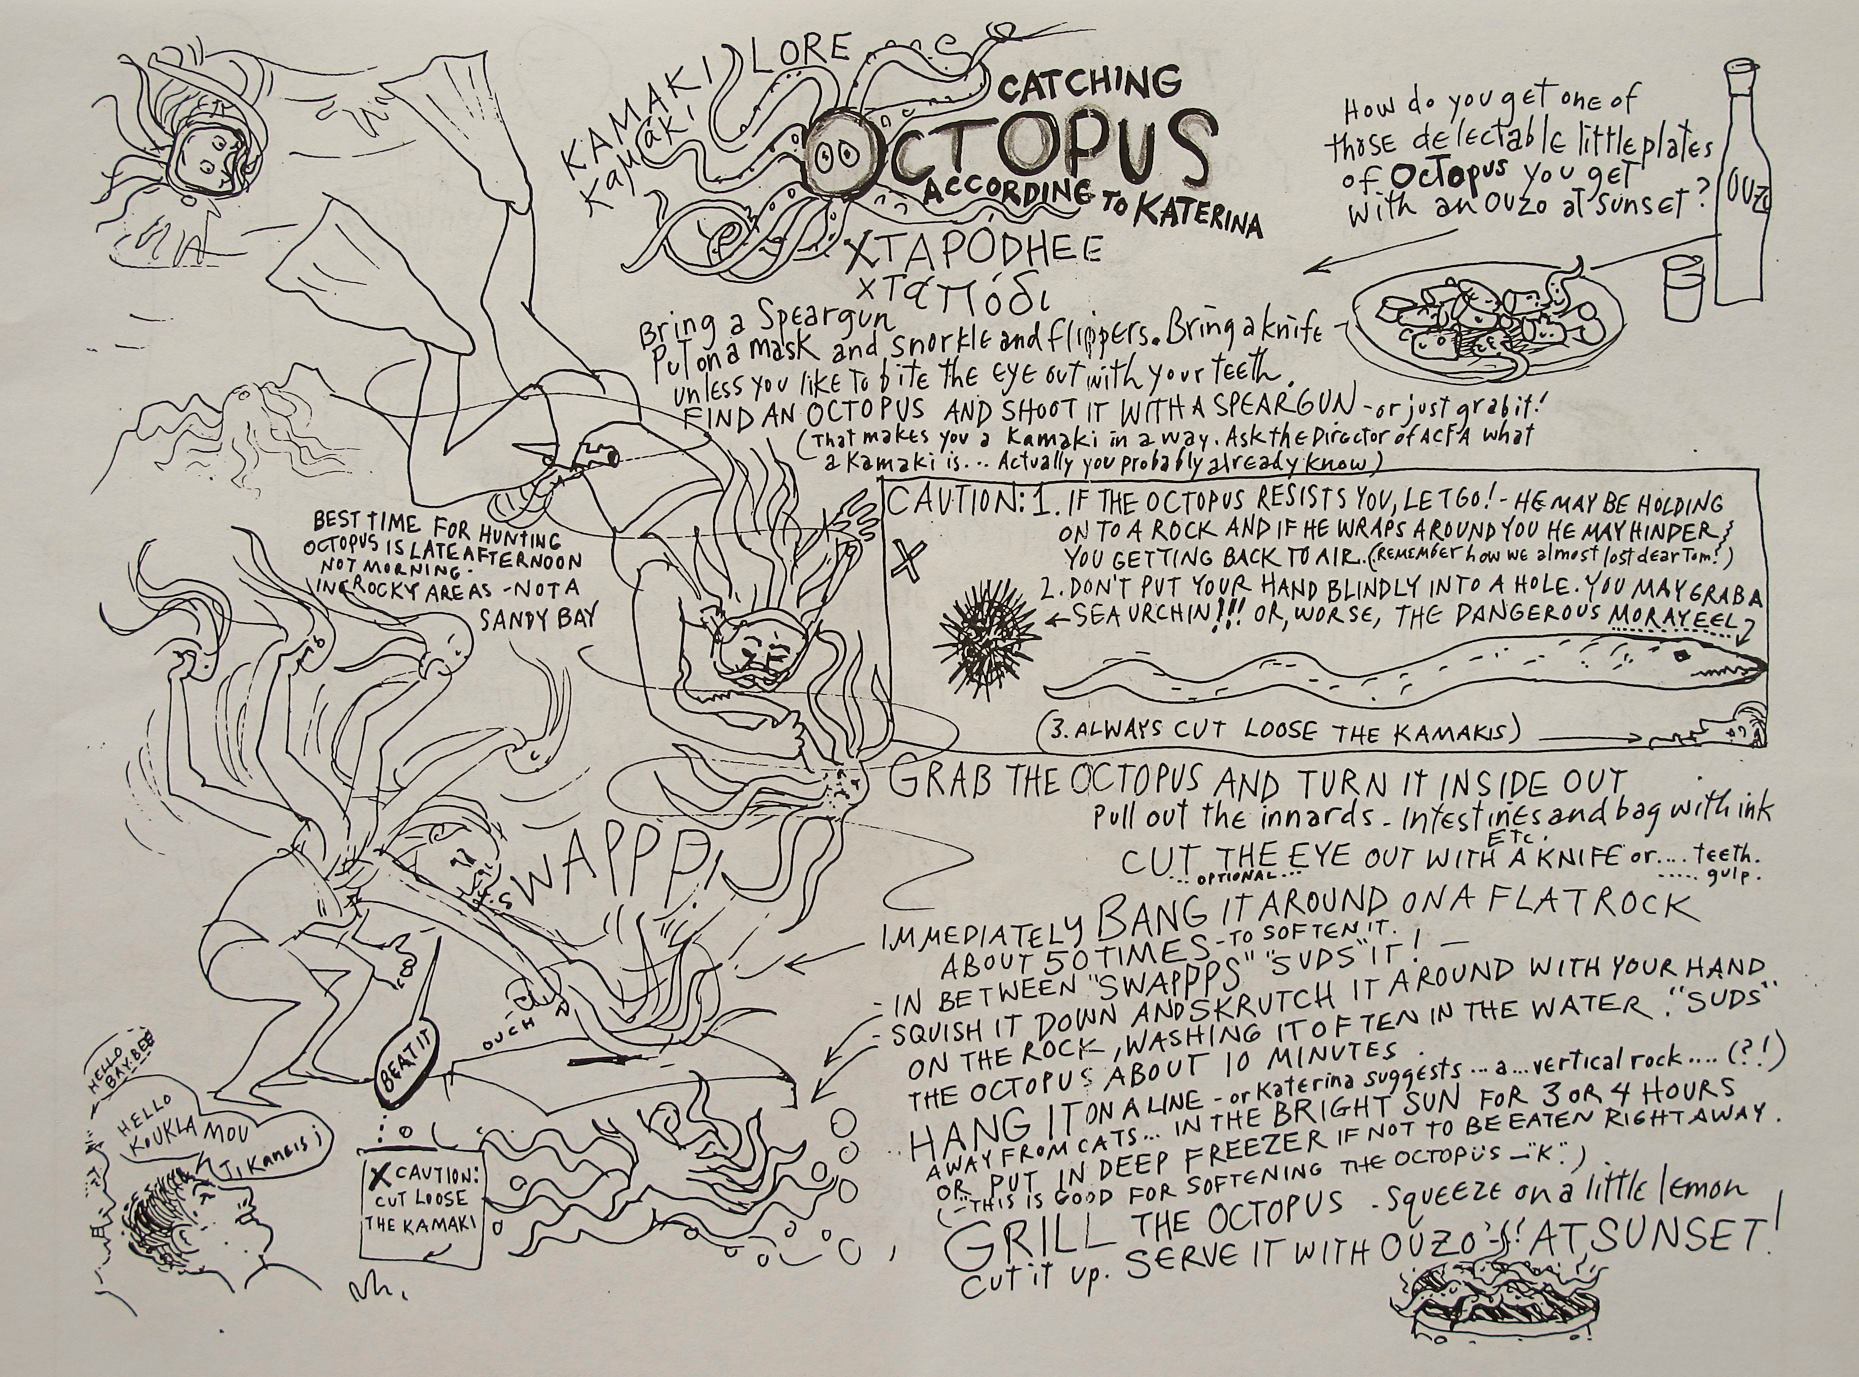 KAMAKI LORE
Καμάκι
CATCHING
OCTOPUS
ACCORDING TO KATERINA
XTAPODHEE
χταπόδι
How do you get one of
those delectable little plates
of Octopus you get
with an ouzo at sunset?
OUZO
Bring a Speargun
Put on a mask and snorkle and flippers. Bring a knife
unless you like to bite the eye out with your teeth.
FIND AN OCTOPUS AND SHOOT IT WITH A SPEARGUN - or just grab it!
(That makes you a Kamaki in a way. Ask the Director of ACFA what
a Kamaki is... Actually you probably already know)
BEST TIME FOR HUNTING
OCTOPUS IS LATE AFTERNOON
NOT MORNING.
IN ROCKY AREAS - NOT A
SANDY BAY
CAUTION: 1. IF THE OCTOPUS RESISTS YOU, LET GO! - HE MAY BE HOLDING
ON TO A ROCK AND IF HE WRAPS AROUND YOU HE MAY HINDER
YOU GETTING BACK TO AIR. (REMEMBER how we almost lost dear Tom?)
X
2. DON'T PUT YOUR HAND BLINDLY INTO A HOLE. YOU MAY GRAB A
SEA URCHIN!!! OR, WORSE, THE DANGEROUS MORAY EEL
(3. ALWAYS CUT LOOSE THE KAMAKIS)
GRAB THE OCTOPUS AND TURN IT INSIDE OUT
Pull out the innards - Intestines and bag with ink
ETC.
CUT THE EYE OUT WITH A KNIFE or.... teeth.
...OPTIONAL... ..... gulp.
SWAPPP!
IMMEDIATELY BANG IT AROUND ON A FLAT ROCK
ABOUT 50 TIMES - TO SOFTEN IT.
- IN BETWEEN "SWAPPPS" "SUDS" IT! -
- SQUISH IT DOWN AND SKRUTCH IT AROUND WITH YOUR HAND
ON THE ROCK, WASHING IT OFTEN IN THE WATER. "SUDS"
THE OCTOPUS ABOUT 10 MINUTES.
HANG IT ON A LINE - or Katerina suggests... a... vertical rock.... (?!)
AWAY FROM CATS... IN THE BRIGHT SUN FOR 3 OR 4 HOURS
OR PUT IN DEEP FREEZER IF NOT TO BE EATEN RIGHT AWAY.
(- THIS IS GOOD FOR SOFTENING THE OCTOPUS - "K".)
GRILL THE OCTOPUS - squeeze on a little lemon
cut it up. SERVE IT WITH OUZO - !! AT SUNSET!
OUCH
BEAT IT
HELLO
BAY-BEE
HELLO
KOUKLA MOU
Ti Kaneis ;
X CAUTION:
CUT LOOSE
THE KAMAKI